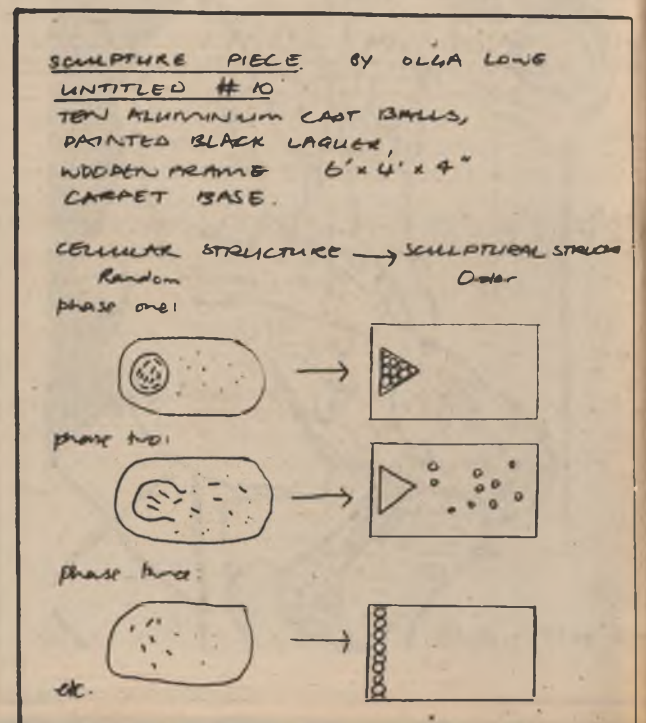 SCULPTURE PIECE BY OLGA LOWE
UNTITLED # 10
TEN ALUMINIUM CAST BALLS,
PAINTED BLACK LAQUER,
WOODEN FRAME 6' x 4' x 4"
CARPET BASE.
CELLULAR STRUCTURE → SCULPTURAL
Random Order
phase one:
phase two:
phase three:
etc.